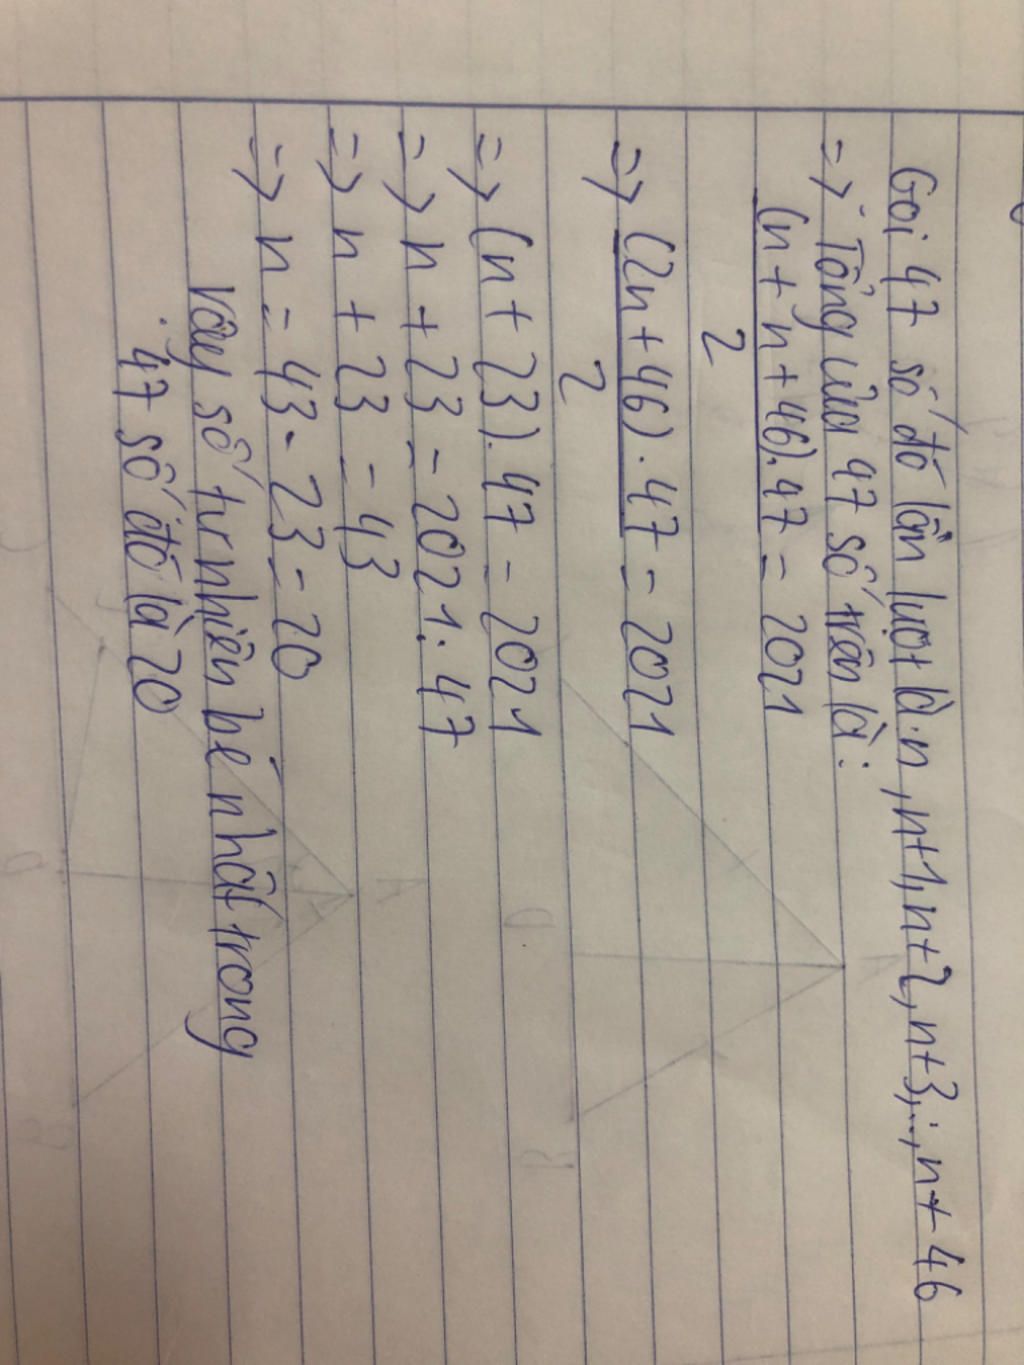 Gọi 47 số đó lần lượt là n, n+1, n+2, n+3,..., n+46
=> Tổng của 47 số trên là:
(n+n+46).47 = 2021
2
=> (2n+46).47 = 2021
2
=> (n+23).47 = 2021
=> n+23 = 2021:47
=> n+23 = 43
=> n = 43-23 = 20
Vậy số tự nhiên bé nhất trong
47 số đó là 20